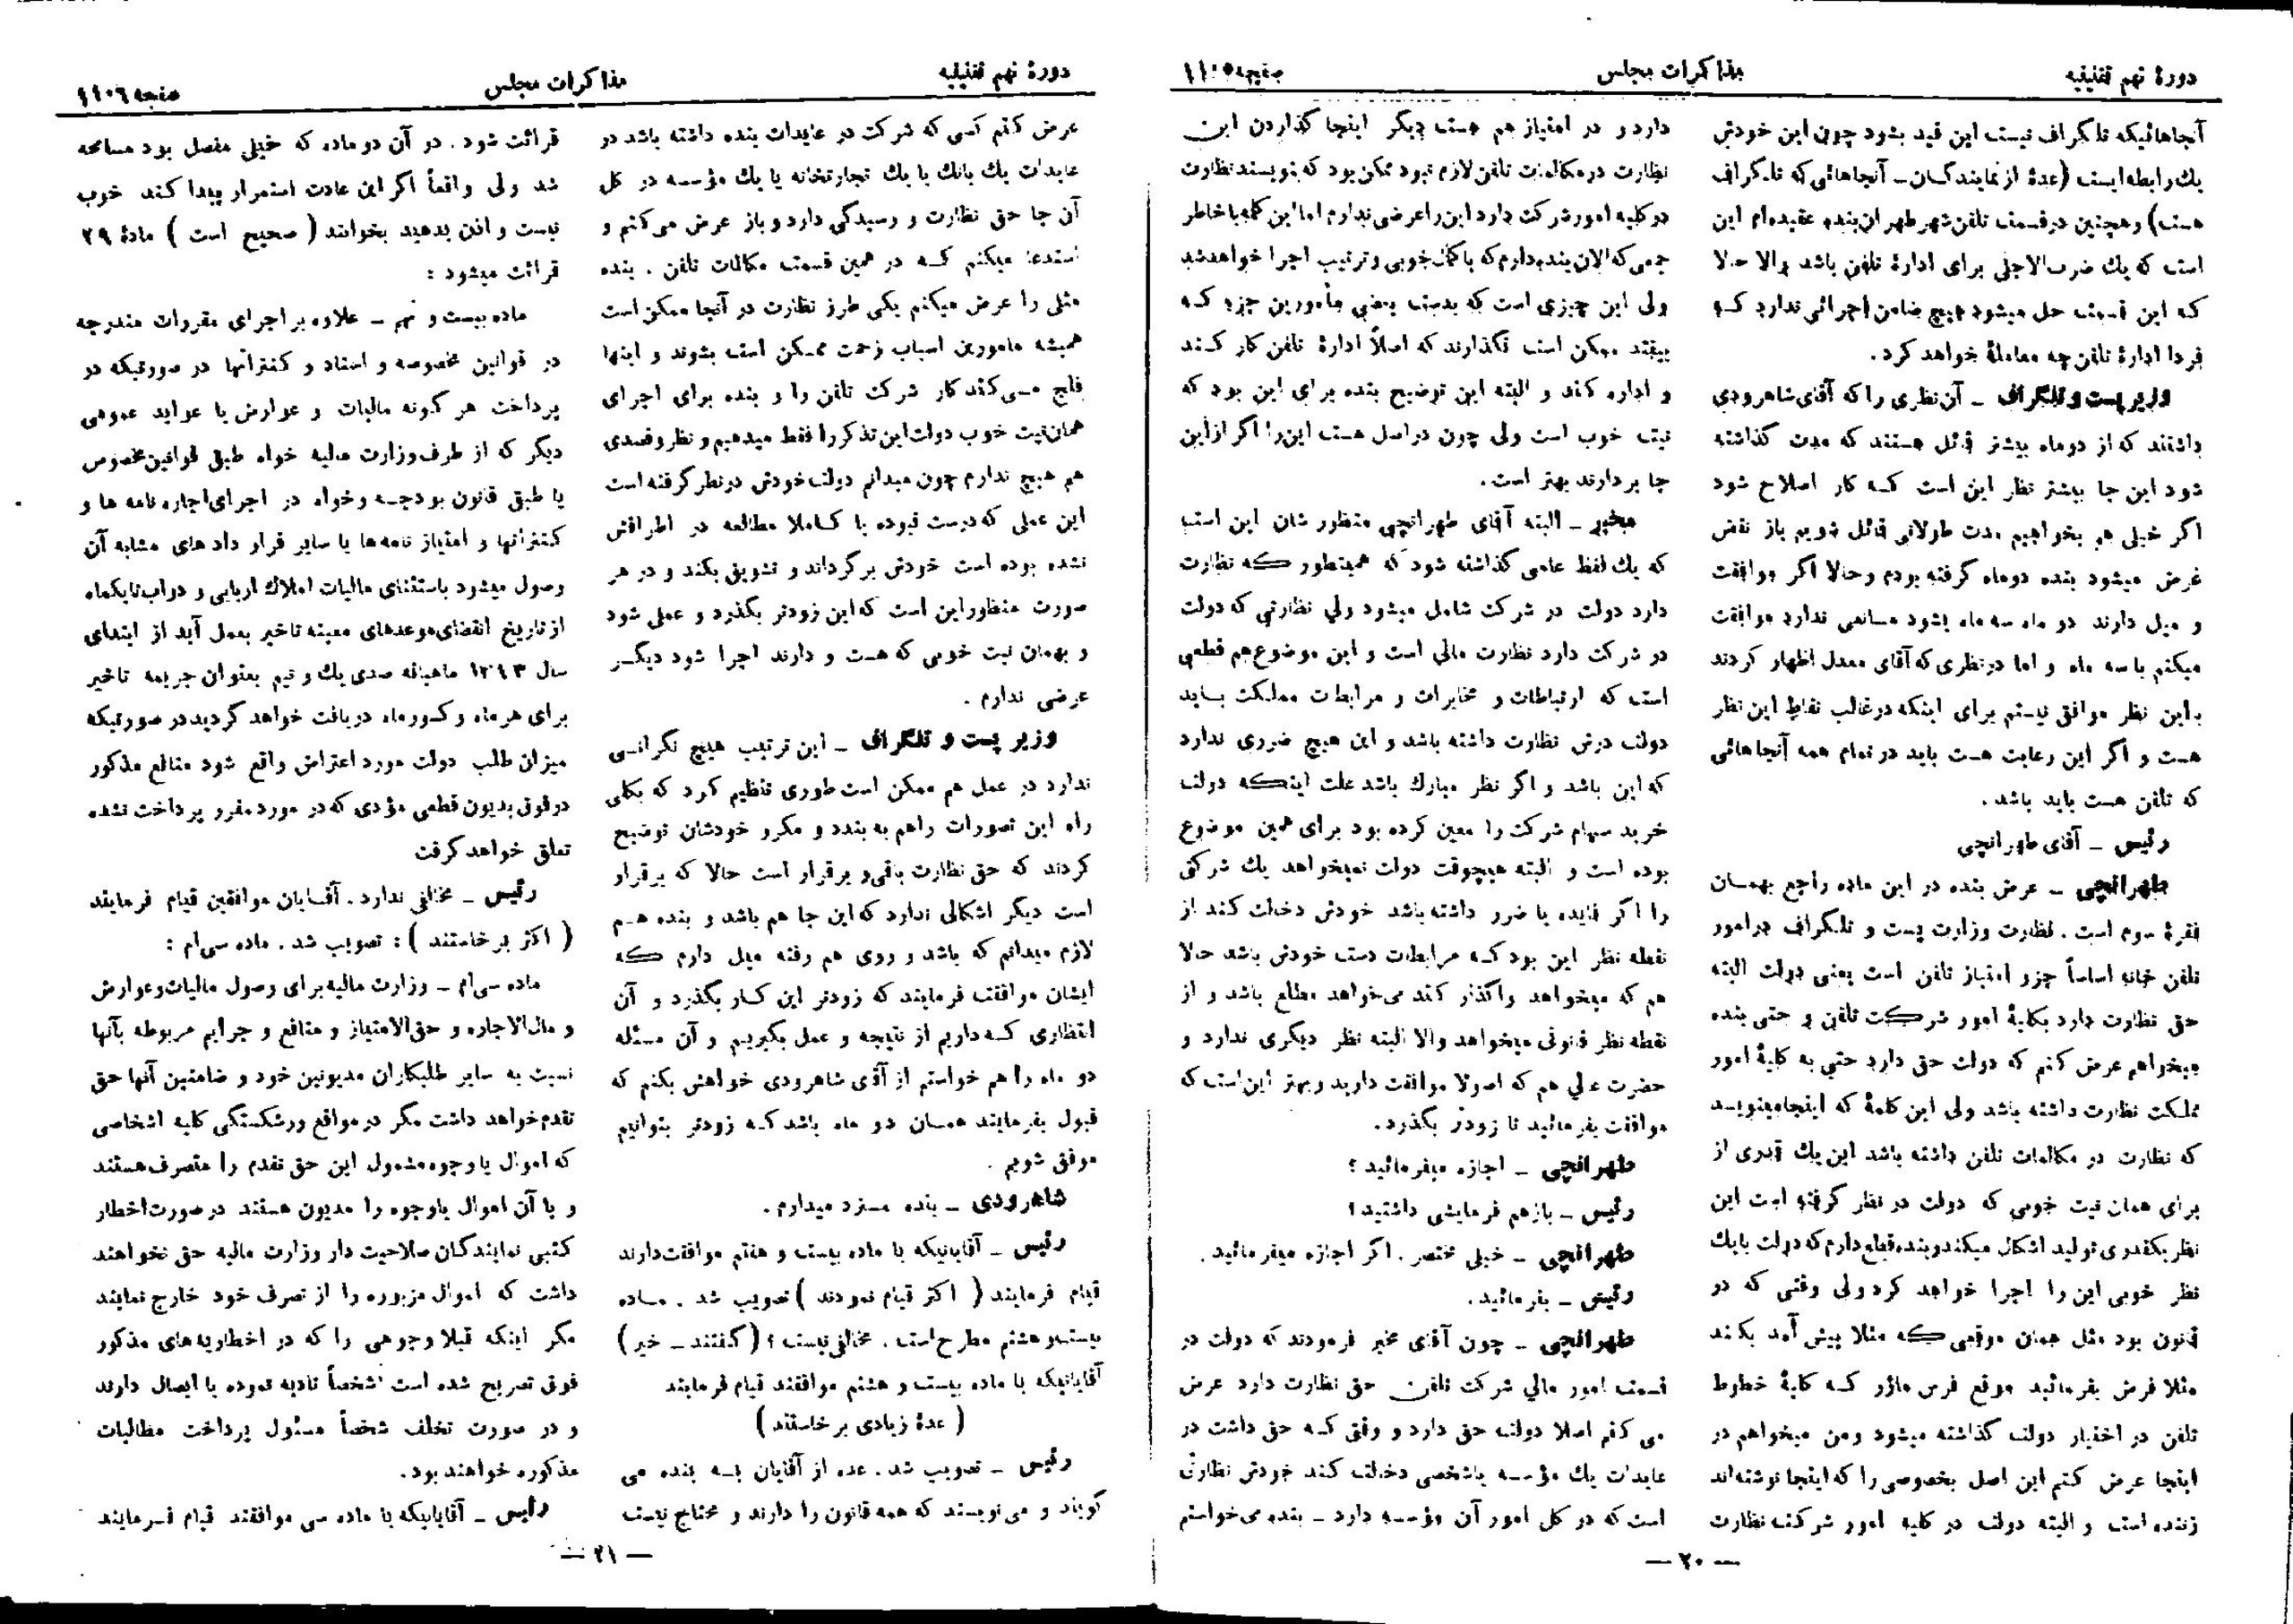 دورهٔ نهم تقنینیه
مذاکرات مجلس
صفحه ۱۱۰۵
آنجاهائیکه تلگراف نیست این قید بشود چون این خودش
یك رابطه‌ایست (عدهٔ از نمایندگان ـ آنجاهائی که تلگراف
هست) وهمچنین در قسمت تلفن شهر طهران بنده عقیده‌ام این
است که یك ضرب‌الاجلی برای ادارهٔ تلفن باشد والا حالا
که این قسمت حل میشود هیچ ضامن اجرائی ندارد که
فردا ادارهٔ تلفن چه معاملهٔ خواهد کرد.
وزیر پست و تلگراف ـ آن نظری را که آقای شاهرودی
داشتند که از دو ماه بیشتر قائل هستند که مدت گذاشته
شود این جا بیشتر نظر این است که کار اصلاح شود
اگر خیلی هم بخواهیم مدت طولانی قائل شویم باز نقض
غرض میشود بنده دوماه گرفته بودم وحالا اگر موافقت
و میل دارند دو ماه سه ماه بشود مانعی ندارد موافقت
میکنم با سه ماه و اما در نظری که آقای معدل اظهار کردند
باین نظر موافق نیستم برای اینکه در غالب نقاط این نظر
هست و اگر این رعایت هست باید در تمام همه آنجاهائی
که تلفن هست باید باشد.
رئیس ـ آقای طهرانچی
طهرانچی ـ عرض بنده در این ماده راجع بهمان
فقرهٔ سوم است. نظارت وزارت پست و تلگراف در امور
تلفن خانه اساساً جزو امتیاز تلفن است یعنی دولت البته
حق نظارت دارد بکلیهٔ امور شرکت تلفن و حتی بنده
میخواهم عرض کنم که دولت حق دارد حتی به کلیهٔ امور
مملکت نظارت داشته باشد ولی این کلمهٔ که اینجا مینویسد
که نظارت در مکالمات تلفن داشته باشد این یك قدری از
برای همان نیت خوبی که دولت در نظر گرفته است این
نظر یکقدری تولید اشکال میکند و بنده قطع دارم که دولت با یك
نظر خوبی این را اجرا خواهد کرد ولی وقتی که در
قانون بود مثل همان موقعی که مثلا پیش آمد بکند
مثلا فرض بفرمائید موقع فرس ماژر که کلیهٔ خطوط
تلفن در اختیار دولت گذاشته میشود ومن میخواهم در
اینجا عرض کنم این اصل بخصوصی را که اینجا نوشته‌اند
زننده است و البته دولت در کلیه امور شرکت نظارت
دارد و در امتیاز هم هست دیگر اینجا گذاردن این
نظارت در مکالمات تلفن لازم نبود ممکن بود که بنویسند نظارت
در کلیه امور شرکت دارد این را عرضی ندارم اما این کلمه با خاطر
جمعی که الان بنده دارم که با کمال خوبی و ترتیب اجرا خواهد شد
ولی این چیزی است که بدست بعضی مأمورین جزء که
بیفتد ممکن است نگذارند که اصلاً ادارهٔ تلفن کار کند
و اداره کند و البته این توضیح بنده برای این بود که
نیت خوب است ولی چون در اصل هست این را اگر از این
جا بردارند بهتر است.
مخبر ـ البته آقای طهرانچی منظورشان این است
که یك لفظ عامی گذاشته شود که همینطور که نظارت
دارد دولت در شرکت شامل میشود ولی نظارتی که دولت
در شرکت دارد نظارت مالی است و این موضوع هم قطعی
است که ارتباطات و مخابرات و مرابطات مملکت باید
دولت درش نظارت داشته باشد و این هیچ ضرری ندارد
که این باشد و اگر نظر مبارك باشد علت اینکه دولت
خرید سهام شرکت را معین کرده بود برای همین موضوع
بوده است و البته هیچوقت دولت نمیخواهد یك شرکتی
را اگر فایده یا ضرر داشته باشد خودش دخالت کند از
نقطه نظر این بود که مرابطات دست خودش باشد حالا
هم که میخواهد واگذار کند می‌خواهد مطلع باشد و از
نقطه نظر قانونی میخواهد والا البته نظر دیگری ندارد و
حضرت عالی هم که اصولا موافقت دارید و بهتر این است که
موافقت بفرمائید تا زودتر بگذرد.
طهرانچی ـ اجازه میفرمائید؟
رئیس ـ بازهم فرمایشی داشتید؟
طهرانچی ـ خیلی مختصر. اگر اجازه میفرمائید.
رئیس ـ بفرمائید.
طهرانچی ـ چون آقای مخبر فرمودند که دولت در
قسمت امور مالی شرکت تلفن حق نظارت دارد عرض
می کنم اصلا دولت حق دارد و وقتی که حق داشت در
عایدات یك مؤسسه یا شخصی دخالت کند خودش نظارتی
است که در کل امور آن مؤسسه دارد ـ بنده می‌خواستم
ـ ۲۰ ـ
دورهٔ نهم تقنینیه
مذاکرات مجلس
صفحه ۱۱۰۶
عرض کنم کسی که شرکت در عایدات بنده داشته باشد در
عایدات یك بانك یا یك تجارتخانه یا یك مؤسسه در کل
آن جا حق نظارت و رسیدگی دارد و باز عرض می‌کنم و
استدعا میکنم که در همین قسمت مکالمات تلفن. بنده
مثلی را عرض میکنم یکی طرز نظارت در آنجا ممکن است
همیشه مامورین اسباب زحمت ممکن است بشوند و اینها
فلج می‌کند کار شرکت تلفن را و بنده برای اجرای
همان نیت خوب دولت این تذکر را فقط میدهیم و نظر و قصدی
هم هیچ ندارم چون میدانم دولت خودش در نظر گرفته است
این عملی که درست نبوده یا کاملا مطالعه در اطرافش
نشده بوده است خودش برگرداند و تشویق بکند و در هر
صورت منظور این است که این زودتر بگذرد و عملی شود
و بهمان نیت خوبی که هست و دارند اجرا شود دیگر
عرضی ندارم.
وزیر پست و تلگراف ـ این ترتیب هیچ نگرانی
ندارد در عمل هم ممکن است طوری تنظیم کرد که بکلی
راه این تصورات را هم به بندد و مکرر خودشان توضیح
کردند که حق نظارت باقی و برقرار است حالا که برقرار
است دیگر اشکالی ندارد که این جا هم باشد و بنده هم
لازم میدانم که باشد و روی هم رفته میل دارم که
ایشان موافقت فرمایند که زودتر این کار بگذرد و آن
انتظاری که داریم از نتیجه و عمل بگیریم و آن مسئله
دو ماه را هم خواستم از آقای شاهرودی خواهش بکنم که
قبول بفرمایند همان دو ماه باشد که زودتر بتوانیم
موفق شویم.
شاهرودی ـ بنده مسترد میدارم.
رئیس ـ آقایانیکه با ماده بیست و هفتم موافقت دارند
قیام فرمایند (اکثر قیام نمودند) تصویب شد. ماده
بیست و هشتم مطرح است. مخالفی نیست؟ (گفتند ـ خیر)
آقایانیکه با ماده بیست و هشتم موافقند قیام فرمایند
(عدهٔ زیادی برخاستند)
رئیس ـ تصویب شد. عده از آقایان به بنده می
گویند و می‌نویسند که همه قانون را دارند و محتاج نیست
قرائت شود. در آن دو ماده که خیلی مفصل بود مسامحه
شد ولی واقعاً اگر این عادت استمرار پیدا کند خوب
نیست و اذن بدهید بخوانند (صحیح است) مادهٔ ۲۹
قرائت میشود:
ماده بیست و نهم ـ علاوه بر اجرای مقررات مندرجه
در قوانین مخصوصه و اسناد و کنتراتها در صورتیکه در
پرداخت هر گونه مالیات و عوارض یا عواید عمومی
دیگر که از طرف وزارت مالیه خواه طبق قوانین مخصوص
یا طبق قانون بودجه و خواه در اجرای اجاره نامه ها و
کنتراتها و امتیاز نامه‌ها یا سایر قرار داد های مشابه آن
وصول میشود باستثنای مالیات املاك اربابی و دواب تا یکماه
از تاریخ انقضای موعدهای معینه تاخیر بعمل آید از ابتدای
سال ۱۳۱۳ ماهیانه صدی یك و نیم بعنوان جریمه تاخیر
برای هر ماه و کسور ماه دریافت خواهد گردید در صورتیکه
میزان طلب دولت مورد اعتراض واقع شود منافع مذکور
در فوق بدیون قطعی مؤدی که در مورد مقرر پرداخت نشده
تعلق خواهد گرفت
رئیس ـ مخالفی ندارد. آقایان موافقین قیام فرمایند
(اکثر برخاستند): تصویب شد. ماده سی‌ام:
ماده سی‌ام ـ وزارت مالیه برای وصول مالیات و عوارض
و مال‌الاجاره و حق‌الامتیاز و منافع و جرایم مربوطه بآنها
نسبت به سایر طلبکاران مدیونین خود و ضامنین آنها حق
تقدم خواهد داشت مگر در مواقع ورشکستگی کلیه اشخاصی
که اموال یا وجوه مشمول این حق تقدم را متصرف هستند
و یا آن اموال یا وجوه را مدیون هستند در صورت اخطار
کتبی نمایندگان صلاحیت دار وزارت مالیه حق نخواهند
داشت که اموال مزبوره را از تصرف خود خارج نمایند
مگر اینکه قبلا وجوهی را که در اخطاریه‌های مذکور
فوق تصریح شده است شخصاً تادیه نموده یا ایصال دارند
و در صورت تخلف شخصاً مسئول پرداخت مطالبات
مذکوره خواهند بود.
رئیس ـ آقایانیکه با ماده سی موافقند قیام فرمایند
ـ ۲۱ ـ